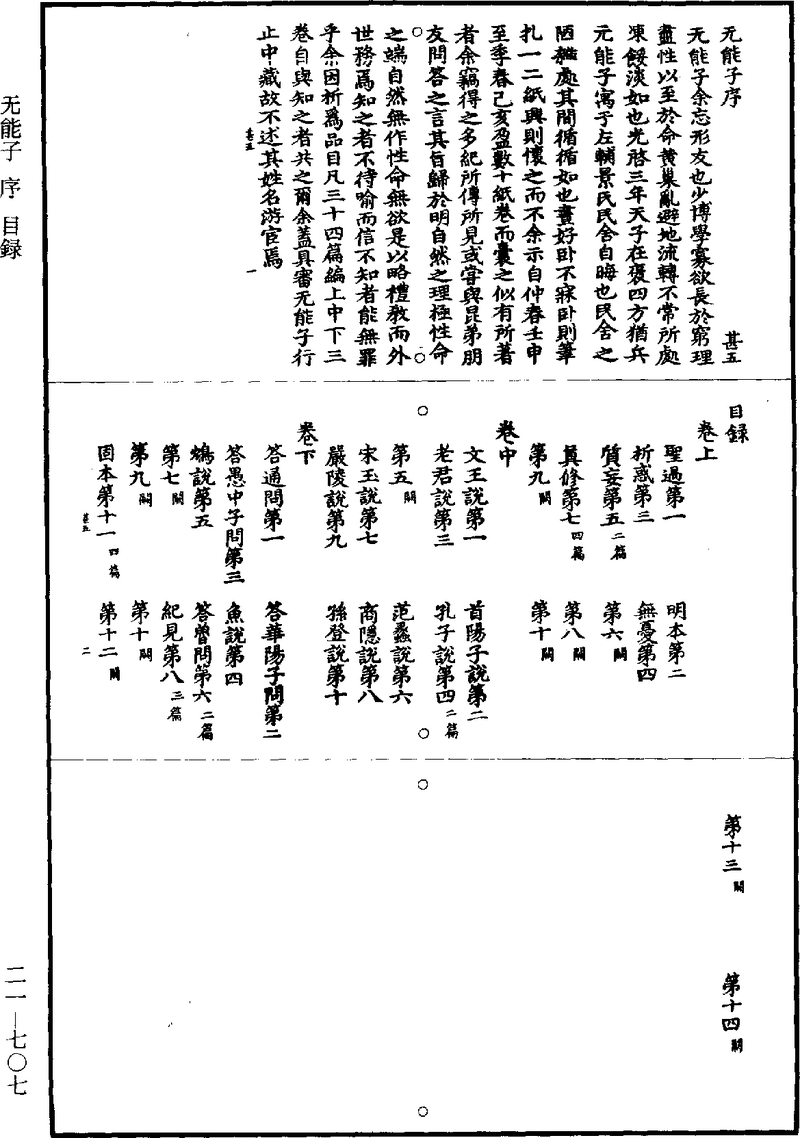 无能子序
甚五
无能子余忘形友也少博學寡欲長於窮理
盡性以至於命黄巢亂避地流轉不常所處
凍餒淡如也光啓三年天子在褒四方猶兵
无能子寓于左輔景氏民舍自晦也民舍之
陋雜處其間循循如也晝好卧不寐卧則筆
扎一二紙興則懷之而不余示自仲春壬申
至季春己亥盈數十紙卷而囊之似有所著
者余竊得之多紀所傳所見或嘗與昆弟朋
友問答之言其旨歸於明自然之理極性命
之端自然無作性命無欲是以略禮教而外
世務焉知之者不待喻而信不知者能無罪
乎余因析爲品目凡三十四篇編上中下三
卷自與知之者共之爾余蓋具審无能子行
止中藏故不述其姓名游宦焉
甚五
一
目録
卷上
聖過第一
明本第二
析惑第三
無憂第四
質妄第五二篇
第六闕
真修第七四篇
第八闕
第九闕
第十闕
卷中
文王説第一
首陽子説第二
老君説第三
孔子説第四二篇
第五闕
范蠡説第六
宋玉説第七
商隱説第八
嚴陵説第九
孫登説第十
卷下
答通問第一
答華陽子問第二
答愚中子問第三
魚説第四
鴆説第五
答魯問第六二篇
第七闕
紀見第八三篇
第九闕
第十闕
固本第十一四篇
第十二闕
甚五
二
第十三闕
第十四闕
无能子 序 目録
二一—七〇七